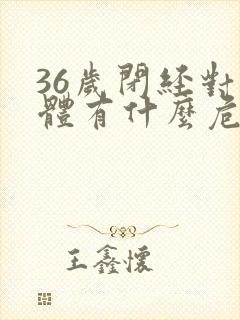 36歲閉經對
體有什麼危
王鑫懷